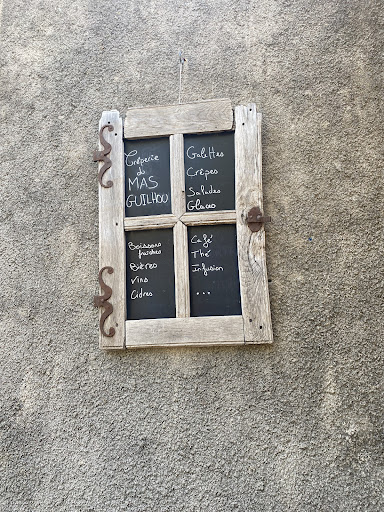 Crêperie
du
MAS
GUILHOU
Galettes
Crêpes
Salades
Glaces
Boissons
fraîches
Bières
Vins
Cidres
Café
Thé
Infusion
...